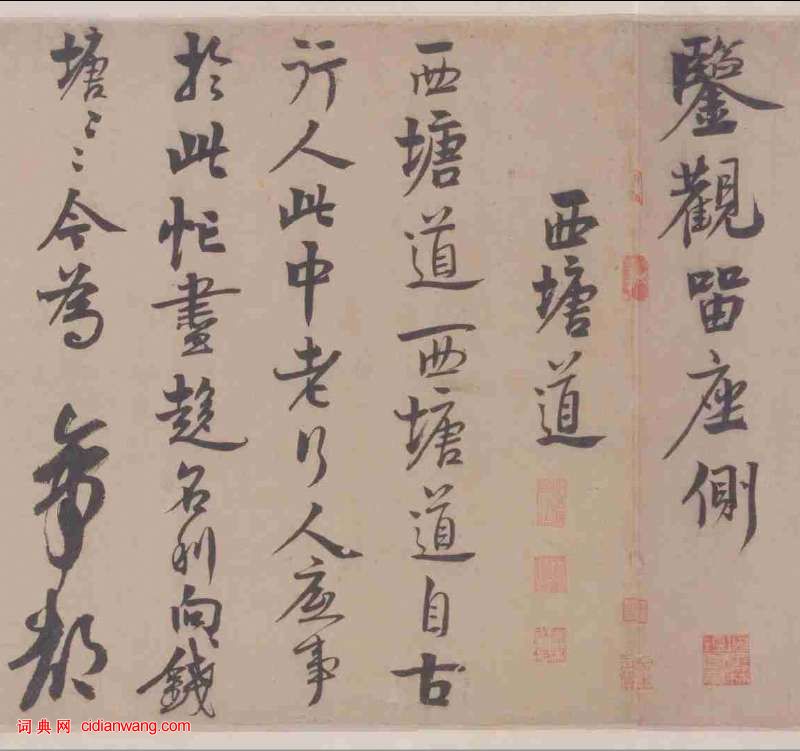 鑒觀留座側
西塘道
西塘道西塘道自古
行人此中老行人底事
於此忙盡趨名利向錢
塘〻〻今為帝都
词典网 cidianwang.com